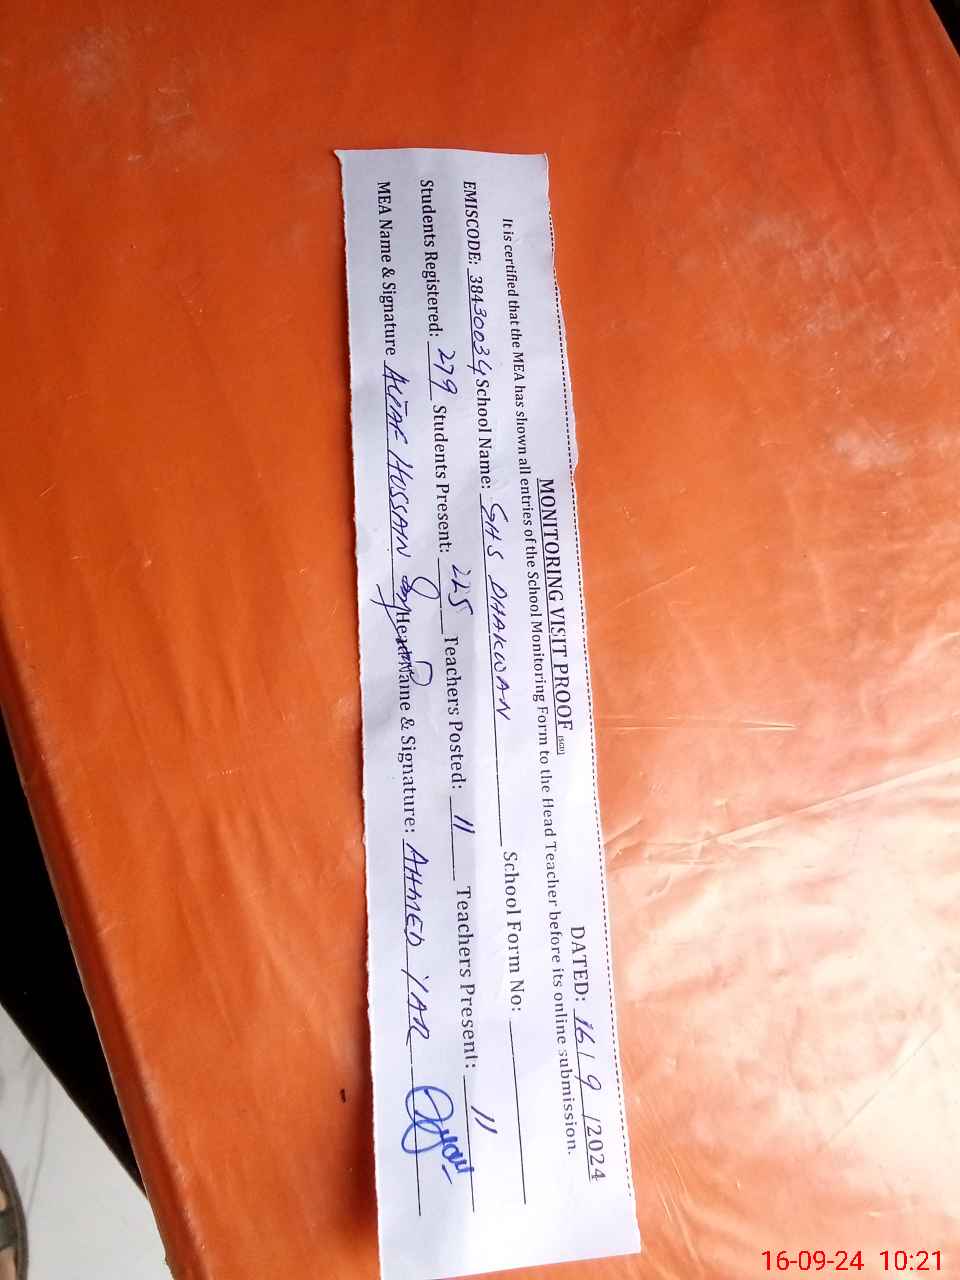 MONITORING VISIT PROOF (SGD) DATED: 16/9/2024
It is certified that the MEA has shown all entries of the School Monitoring Form to the Head Teacher before its online submission.
EMISCODE: 38430034 School Name: GHS DHAKWAN School Form No:
Students Registered: 279 Students Present: 225 Teachers Posted: 11 Teachers Present: 11
MEA Name & Signature ALTAF HUSSAN Head Name & Signature: AHMED YAR
16-09-24 10:21